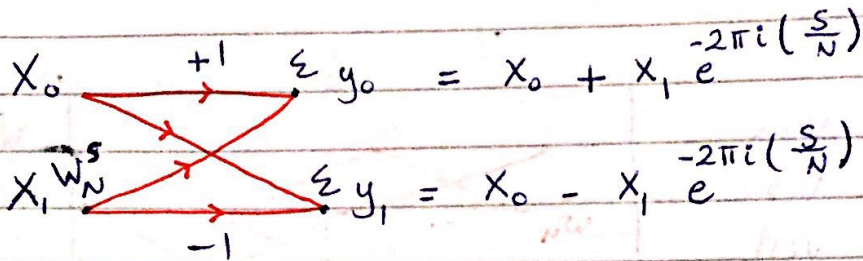 +1
X₀ Σ y₀ = X₀ + X₁ e^{-2πi(S/N)}
X₁ W_N^S Σ y₁ = X₀ - X₁ e^{-2πi(S/N)}
-1